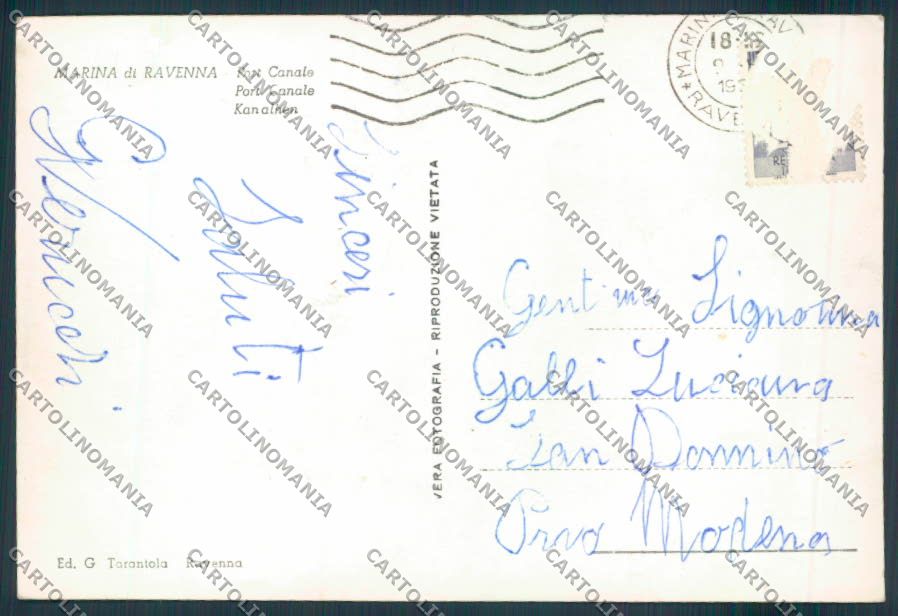 MARINA di RAVENNA - Port Canale
Port Canale
Kanalhen
Sinceri
Saluti
VERA FOTOGRAFIA - RIPRODUZIONE VIETATA
MARINA RAV
18
19
RAVE
Gent.ma Signorina
Galli Luciana
San Donnino
Prva Modena
Ed. G Tarantola Ravenna
CARTOLINOMANIA